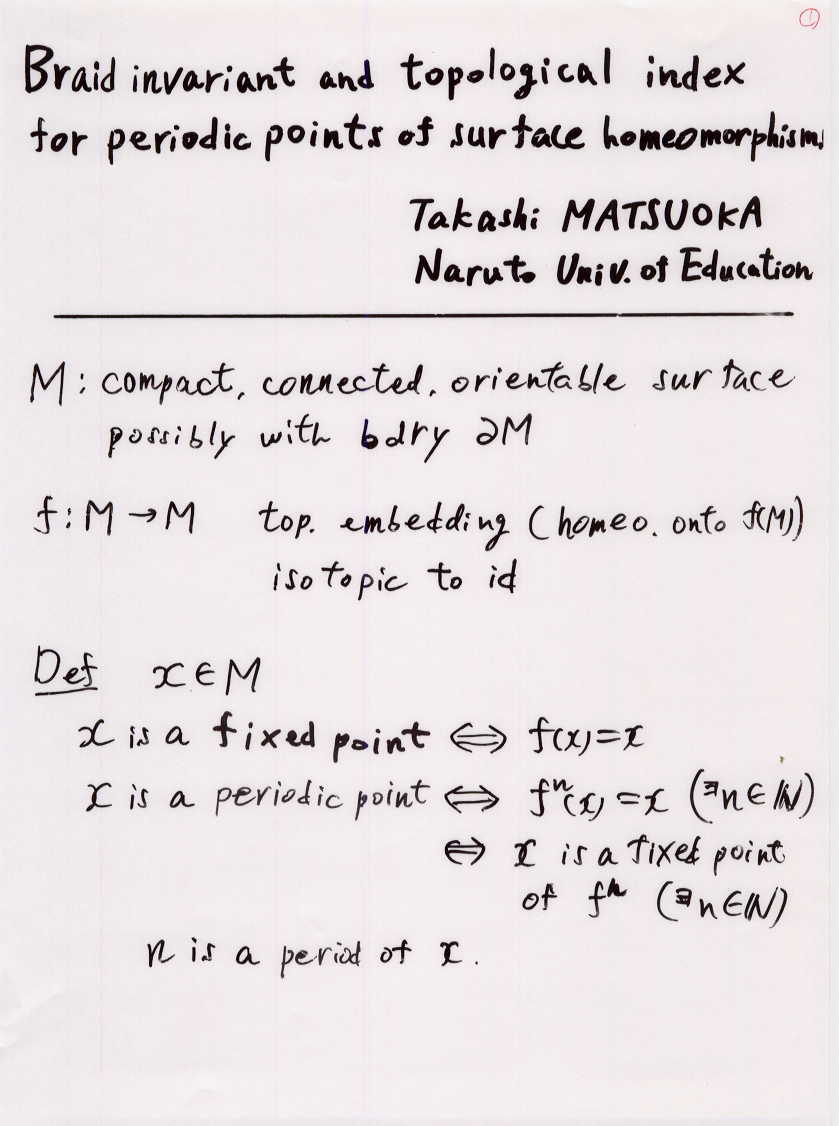 ①
Braid invariant and topological index
for periodic points of surface homeomorphisms
Takashi MATSUOKA
Naruto Univ. of Education
M : compact, connected, orientable surface
possibly with bdry ∂M
f : M → M top. embedding (homeo. onto f(M))
isotopic to id
Def x ∈ M
x is a fixed point ⇔ f(x) = x
x is a periodic point ⇔ fⁿ(x) = x (∃n ∈ ℕ)
⇔ x is a fixed point
of fⁿ (∃n ∈ ℕ)
n is a period of x.